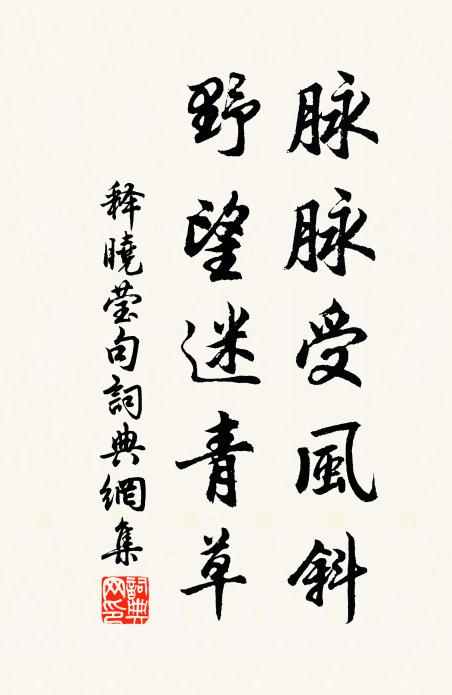 脉脉受風斜
野望迷青草
释曉莹句詞典網集
詞典网印